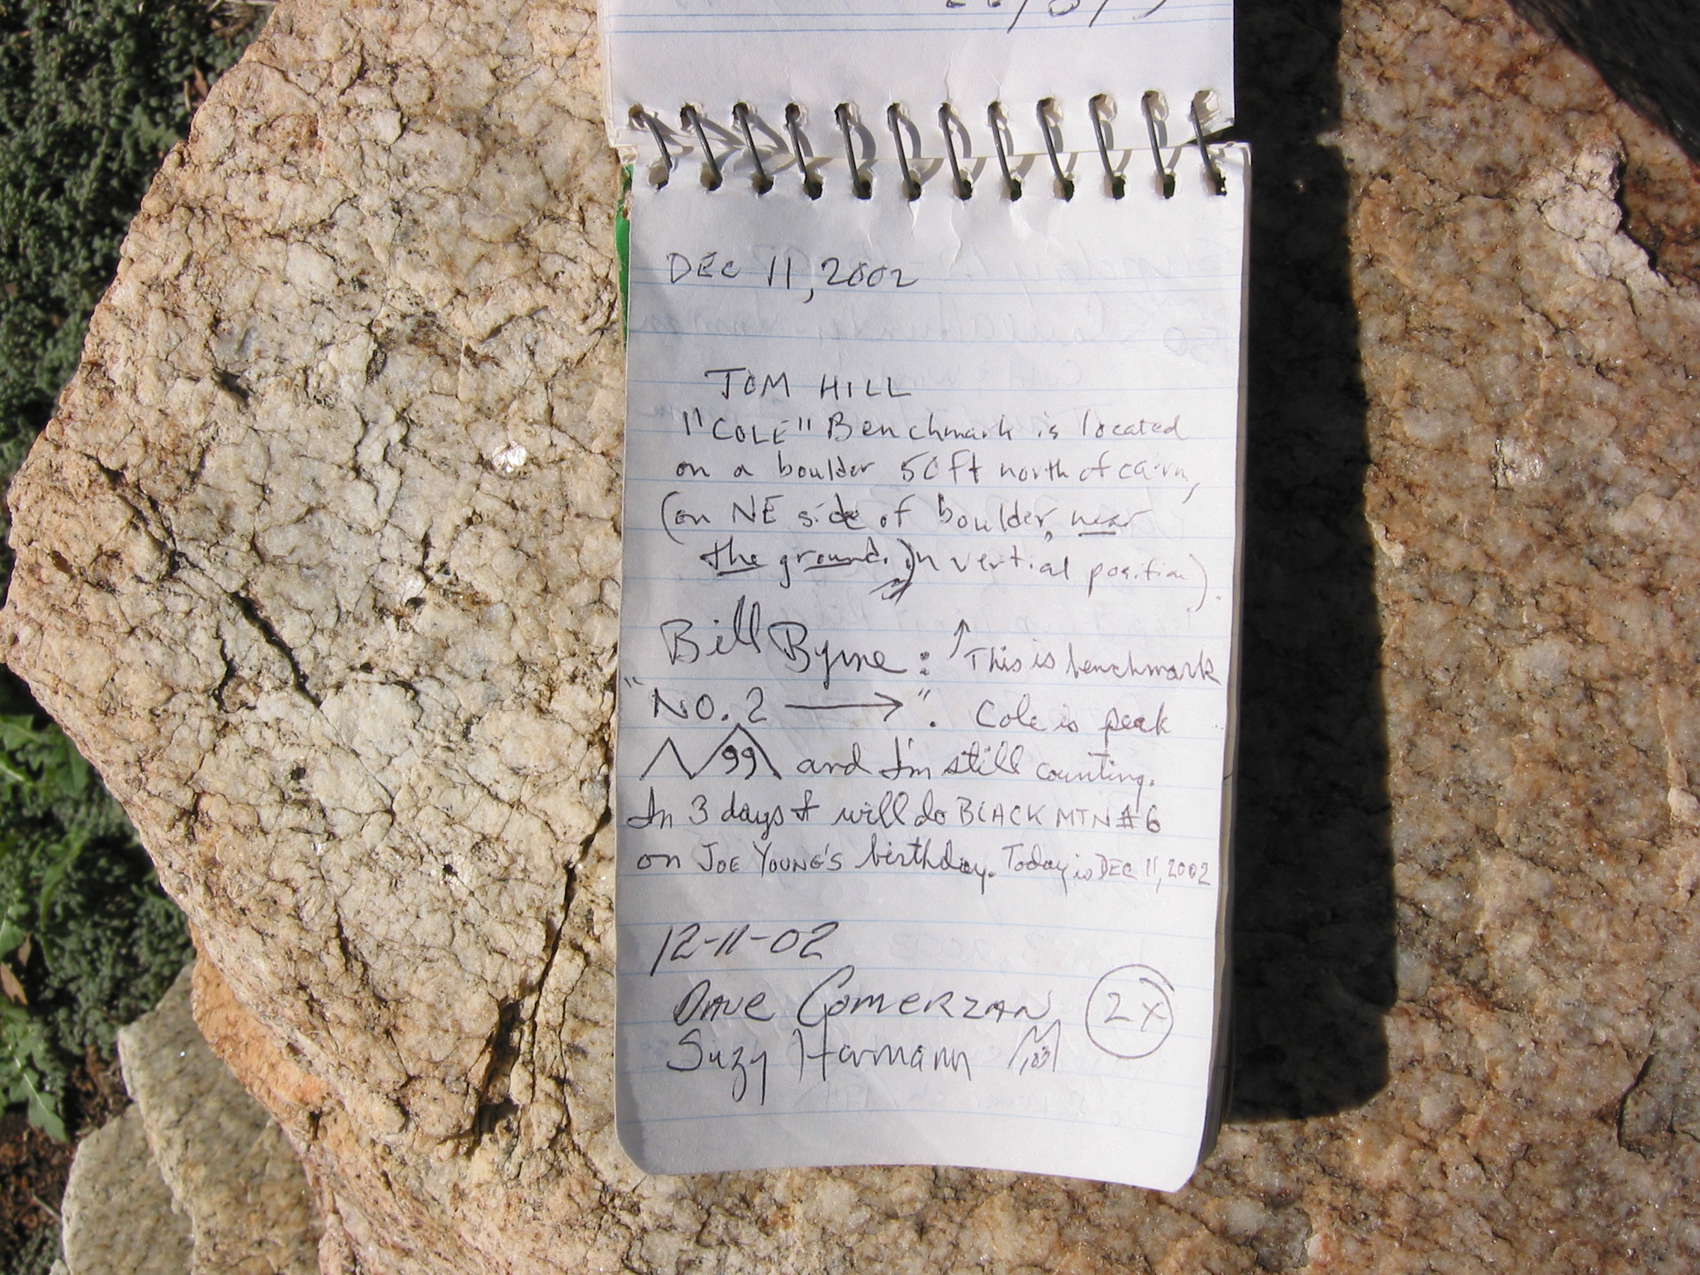 DEC 11, 2002
TOM HILL
"COLE" Benchmark is located
on a boulder 50 ft north of cairn,
(on NE side of boulder, near
the ground. in vertial position).
Bill Byrne: ↑ This is benchmark
"NO. 2 →". Cole is peak
99 and I'm still counting.
In 3 days I will do BLACK MTN #6
on JOE YOUNG'S birthday. Today is DEC 11, 2002
12-11-02
DAVE COMERZAN 2X
Suzy Hermann